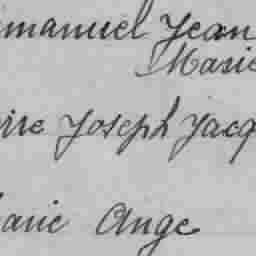 mmanuel Jean
Marie
rre Joseph Jacq
arie Ange